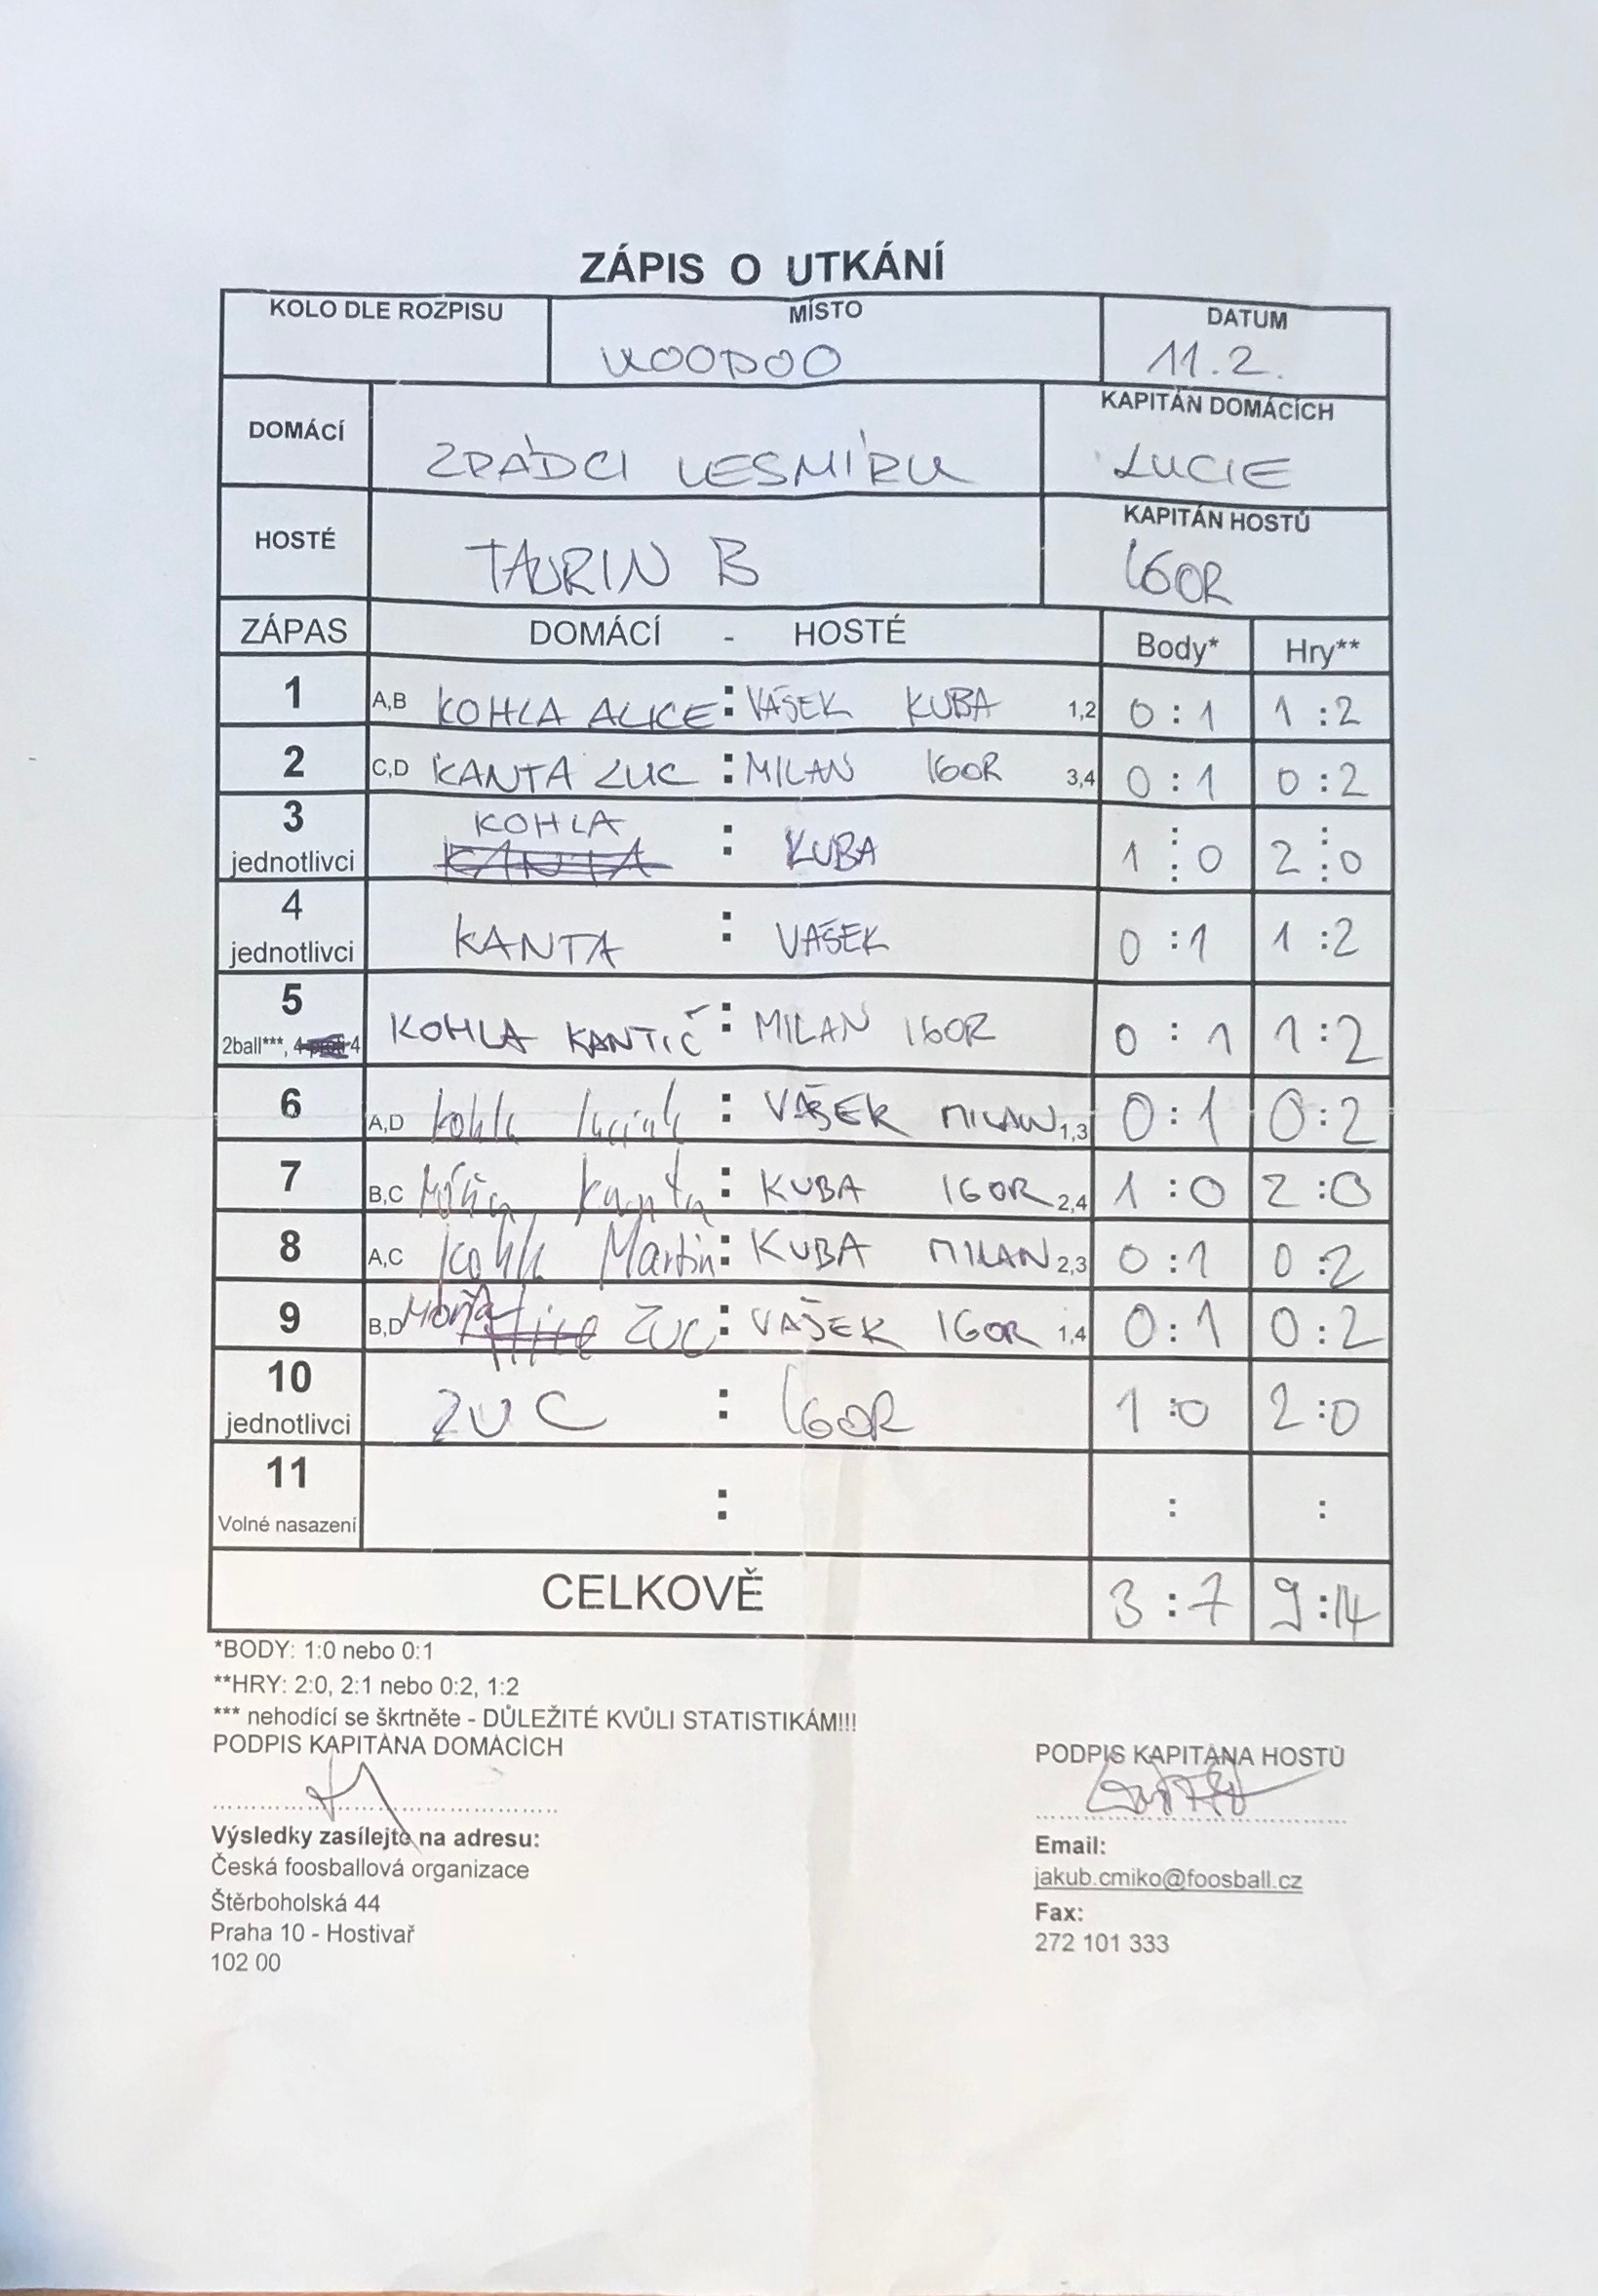 ZÁPIS O UTKÁNÍ
KOLO DLE ROZPISU MÍSTO DATUM
VOODOO 11.2.
DOMÁCÍ ZRÁDCI VESMÍRU KAPITÁN DOMÁCÍCH
LUCIE
HOSTÉ TAURIN B KAPITÁN HOSTŮ
IGOR
ZÁPAS DOMÁCÍ - HOSTÉ Body* Hry**
1 A,B KOHLA ALICE : VAŠEK KUBA 1,2 0 : 1 1 : 2
2 C,D KANTA LUC : MILAN IGOR 3,4 0 : 1 0 : 2
3 jednotlivci KOHLA : KUBA 1 : 0 2 : 0
4 jednotlivci KANTA : VAŠEK 0 : 1 1 : 2
5 2ball***, 4 4 KOHLA KANTIČ : MILAN IGOR 0 : 1 1 : 2
6 A,D Kohla : VAŠEK MILAN 1,3 0 : 1 0 : 2
7 B,C Kanta : KUBA IGOR 2,4 1 : 0 2 : 0
8 A,C Kohla Martin : KUBA MILAN 2,3 0 : 1 0 : 2
9 B,D LUC : VAŠEK IGOR 1,4 0 : 1 0 : 2
10 jednotlivci LUC : IGOR 1 : 0 2 : 0
11 Volné nasazení : : :
CELKOVĚ 3 : 7 9 : 14
*BODY: 1:0 nebo 0:1
**HRY: 2:0, 2:1 nebo 0:2, 1:2
*** nehodící se škrtněte - DŮLEŽITÉ KVŮLI STATISTIKÁM!!!
PODPIS KAPITÁNA DOMÁCÍCH
PODPIS KAPITÁNA HOSTŮ
Výsledky zasílejte na adresu:
Česká foosballová organizace
Štěrboholská 44
Praha 10 - Hostivař
102 00
Email:
jakub.cmiko@foosball.cz
Fax:
272 101 333